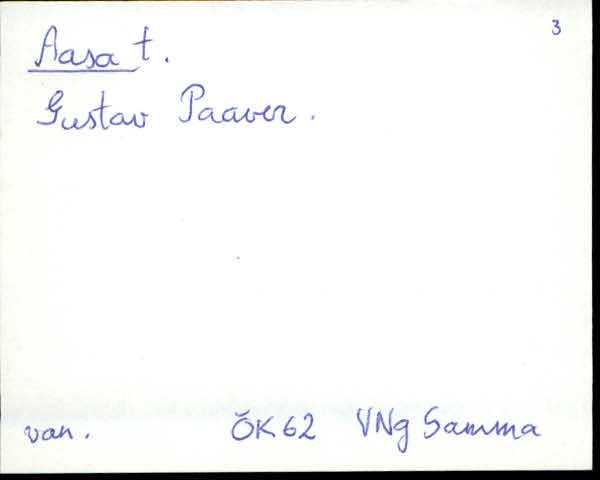 3
Aasa t.
Gustav Paaver.
van. ÕK 62 VNg Samma